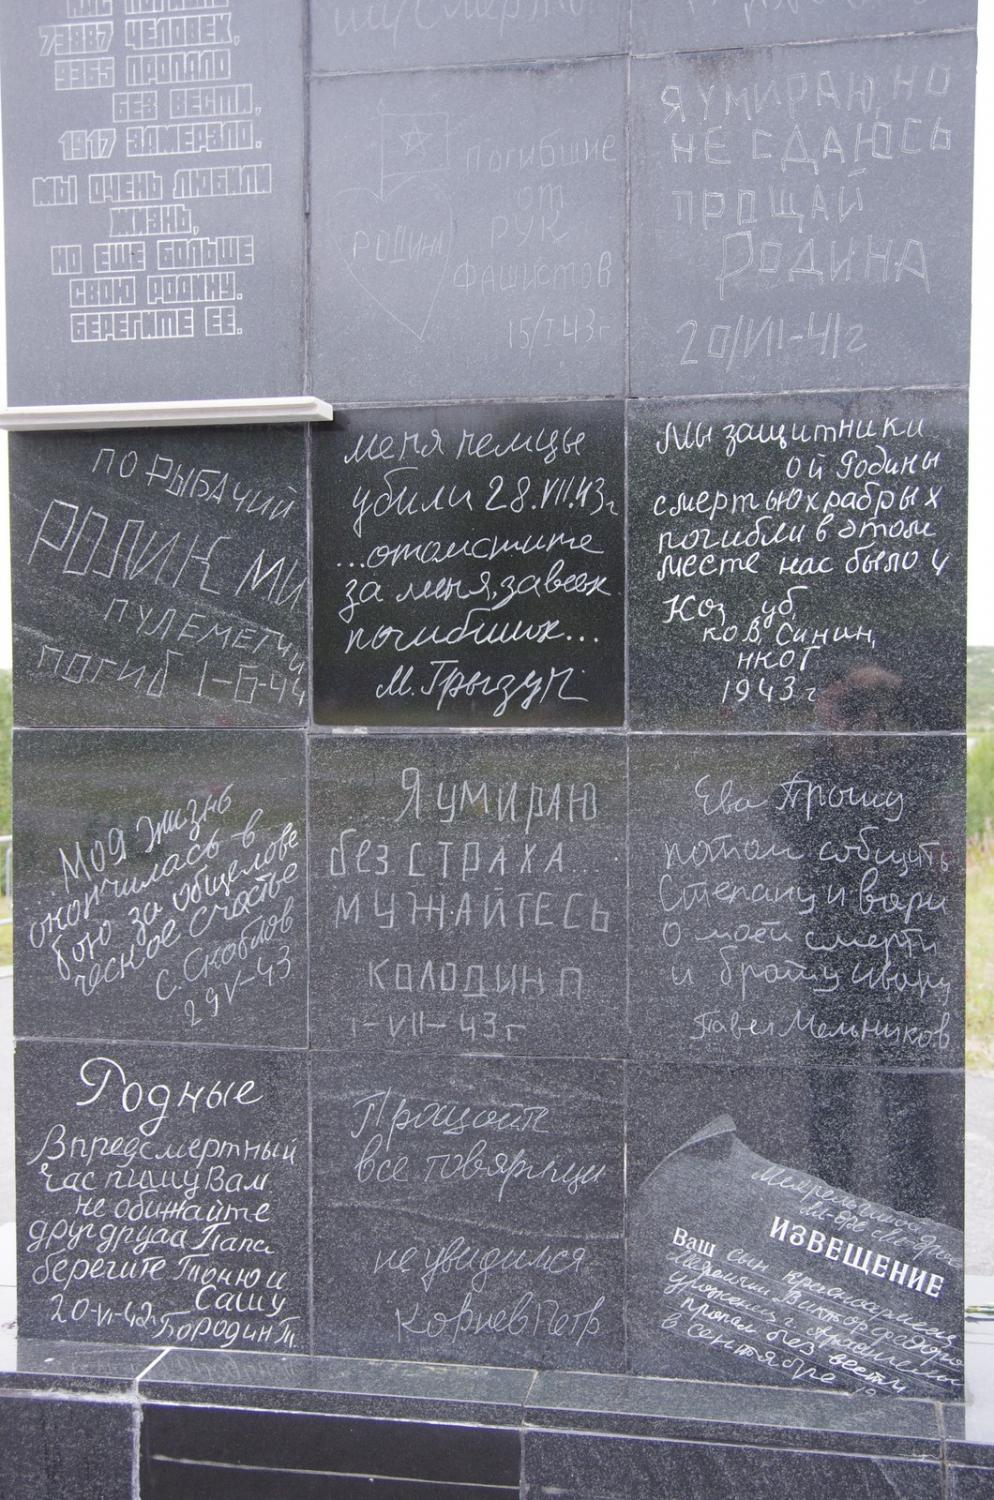 73887 ЧЕЛОВЕК,
9365 ПРОПАЛО
БЕЗ ВЕСТИ,
1917 ЗАМЕРЗЛО.
МЫ ОЧЕНЬ ЛЮБИЛИ
ЖИЗНЬ,
НО ЕЩЕ БОЛЬШЕ
СВОЮ РОДИНУ.
БЕРЕГИТЕ ЕЕ.
РОДИНА
Погибшие
от
РУК
ФАШИСТОВ
15/I 43г
Я УМИРАЮ, НО
НЕ СДАЮСЬ
ПРОЩАЙ
РОДИНА
20/VII-41г
ПО РЫБАЧИЙ
РОДИК МИ
ПУЛЕМЕТЧИ
ПОГИБ 1-6-44
меня немцы
убили 28.VII.43г
...отомстите
за меня, за всех
погибших...
М. Грызун
Мы защитники
ой Родины
смертью храбрых
погибли в этом
месте нас было 4
Коз уб,
ков, Синин,
нког
1943г
Моя жизнь
окончилась в
бою за общелове
ческое счастье
С. Скоблов
29 V-43
Я УМИРАЮ
без СТРАХА...
МУЖАЙТЕСЬ
КОЛОДИН П
1-VII-43г
Ева Прошу
потом собщить
Степану и вари
О моей смерти
и брату ивану
Павел Мельников
Родные
В предсмертный
час пишу Вам
не обижайте
друг друга Папа
берегите Тоню и
Сашу
20-VI-42г Бородин П.
Прощайте
все товарищи
не увидимся
Корнев Петр
ИЗВЕЩЕНИЕ
Ваш сын красноармеец
Виктор Федоро
пропал без вести
в сентябре 19